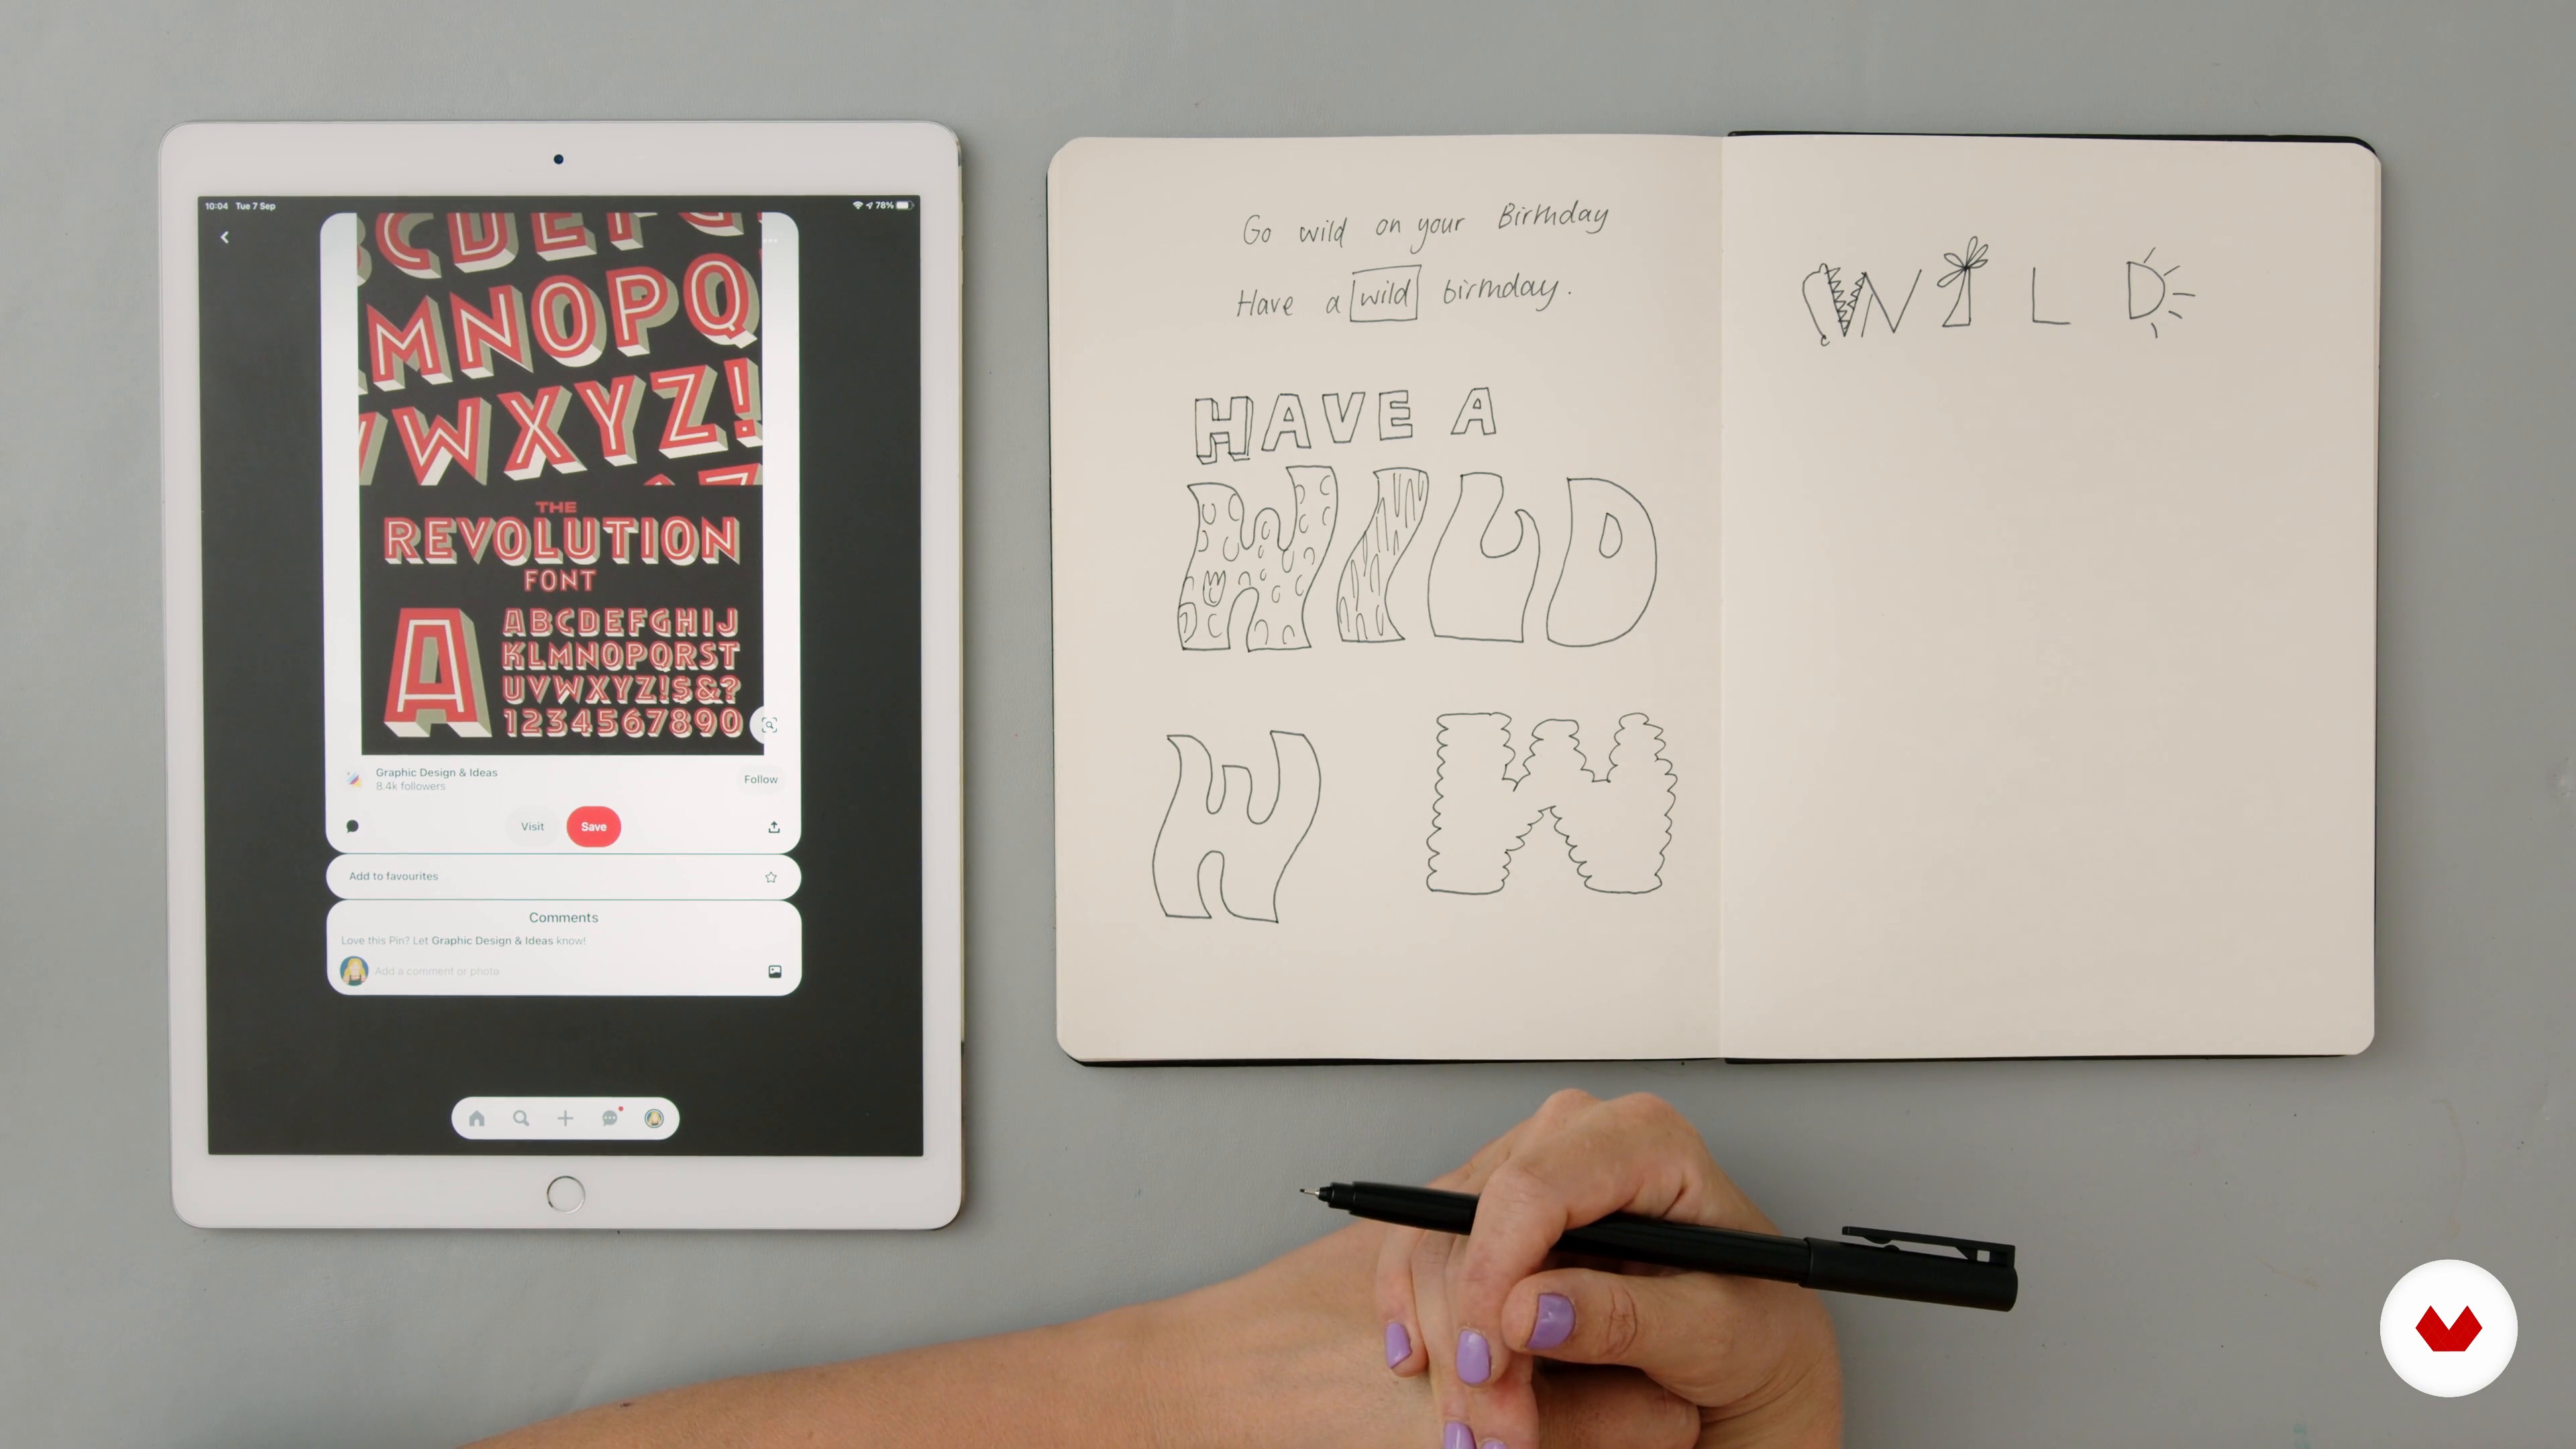 10:04 Tue 7 Sep
78%
CDEFG
MNOPQ
VWXYZ!
AZ
THE
REVOLUTION
FONT
A
ABCDEFGHIJ
KLMNOPQRST
UVWXYZ!$&?
1234567890
Graphic Design & Ideas
8.4k followers
Follow
Visit
Save
Add to favourites
Comments
Love this Pin? Let Graphic Design & Ideas know!
Add a comment or photo
Go wild on your Birthday
Have a wild birthday.
HAVE A
WILD
W W
WILD